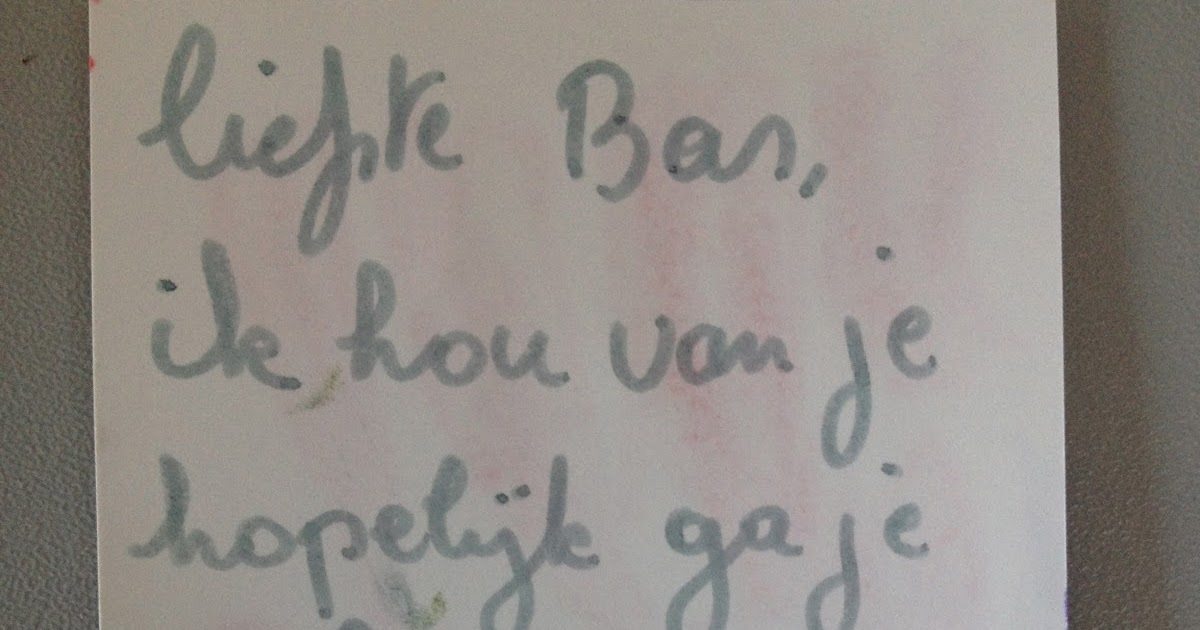 liefste Bas,
ik hou van je
hopelijk ga je